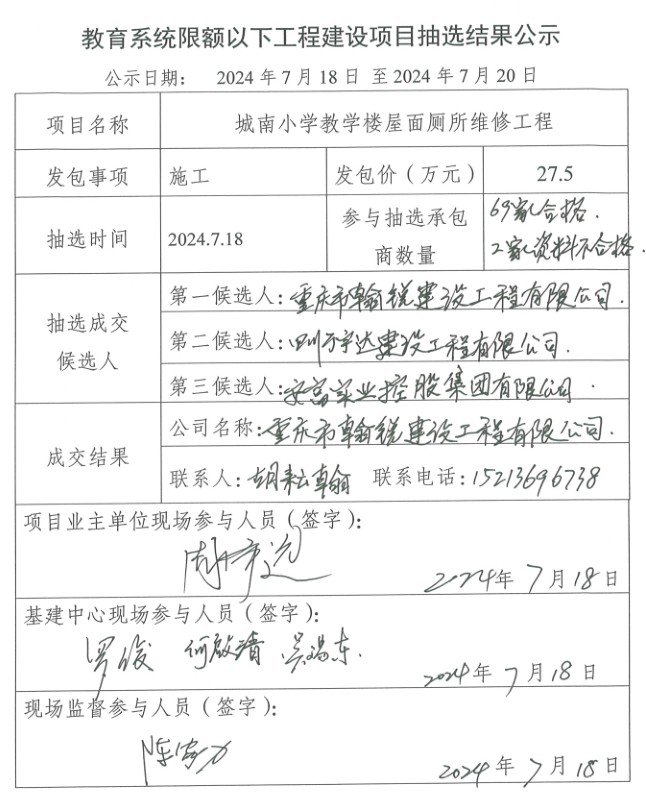 教育系统限额以下工程建设项目抽选结果公示
公示日期： 2024 年 7 月 18 日 至 2024 年 7 月 20 日
项目名称 城南小学教学楼屋面厕所维修工程
发包事项 施工 发包价（万元） 27.5
抽选时间 2024.7.18 参与抽选承包商数量 69家合格. 2家资料不合格.
抽选成交候选人
第一候选人: 重庆市翰锐建设工程有限公司.
第二候选人: 四川万宇达建设工程有限公司.
第三候选人: 安富实业控股集团有限公司.
成交结果
公司名称: 重庆市翰锐建设工程有限公司.
联系人: 胡耘翰 联系电话: 15213696738
项目业主单位现场参与人员（签字）:
2024年 7月18日
基建中心现场参与人员（签字）:
罗俊 何啟清
2024年 7月18日
现场监督参与人员（签字）:
2024年 7月18日